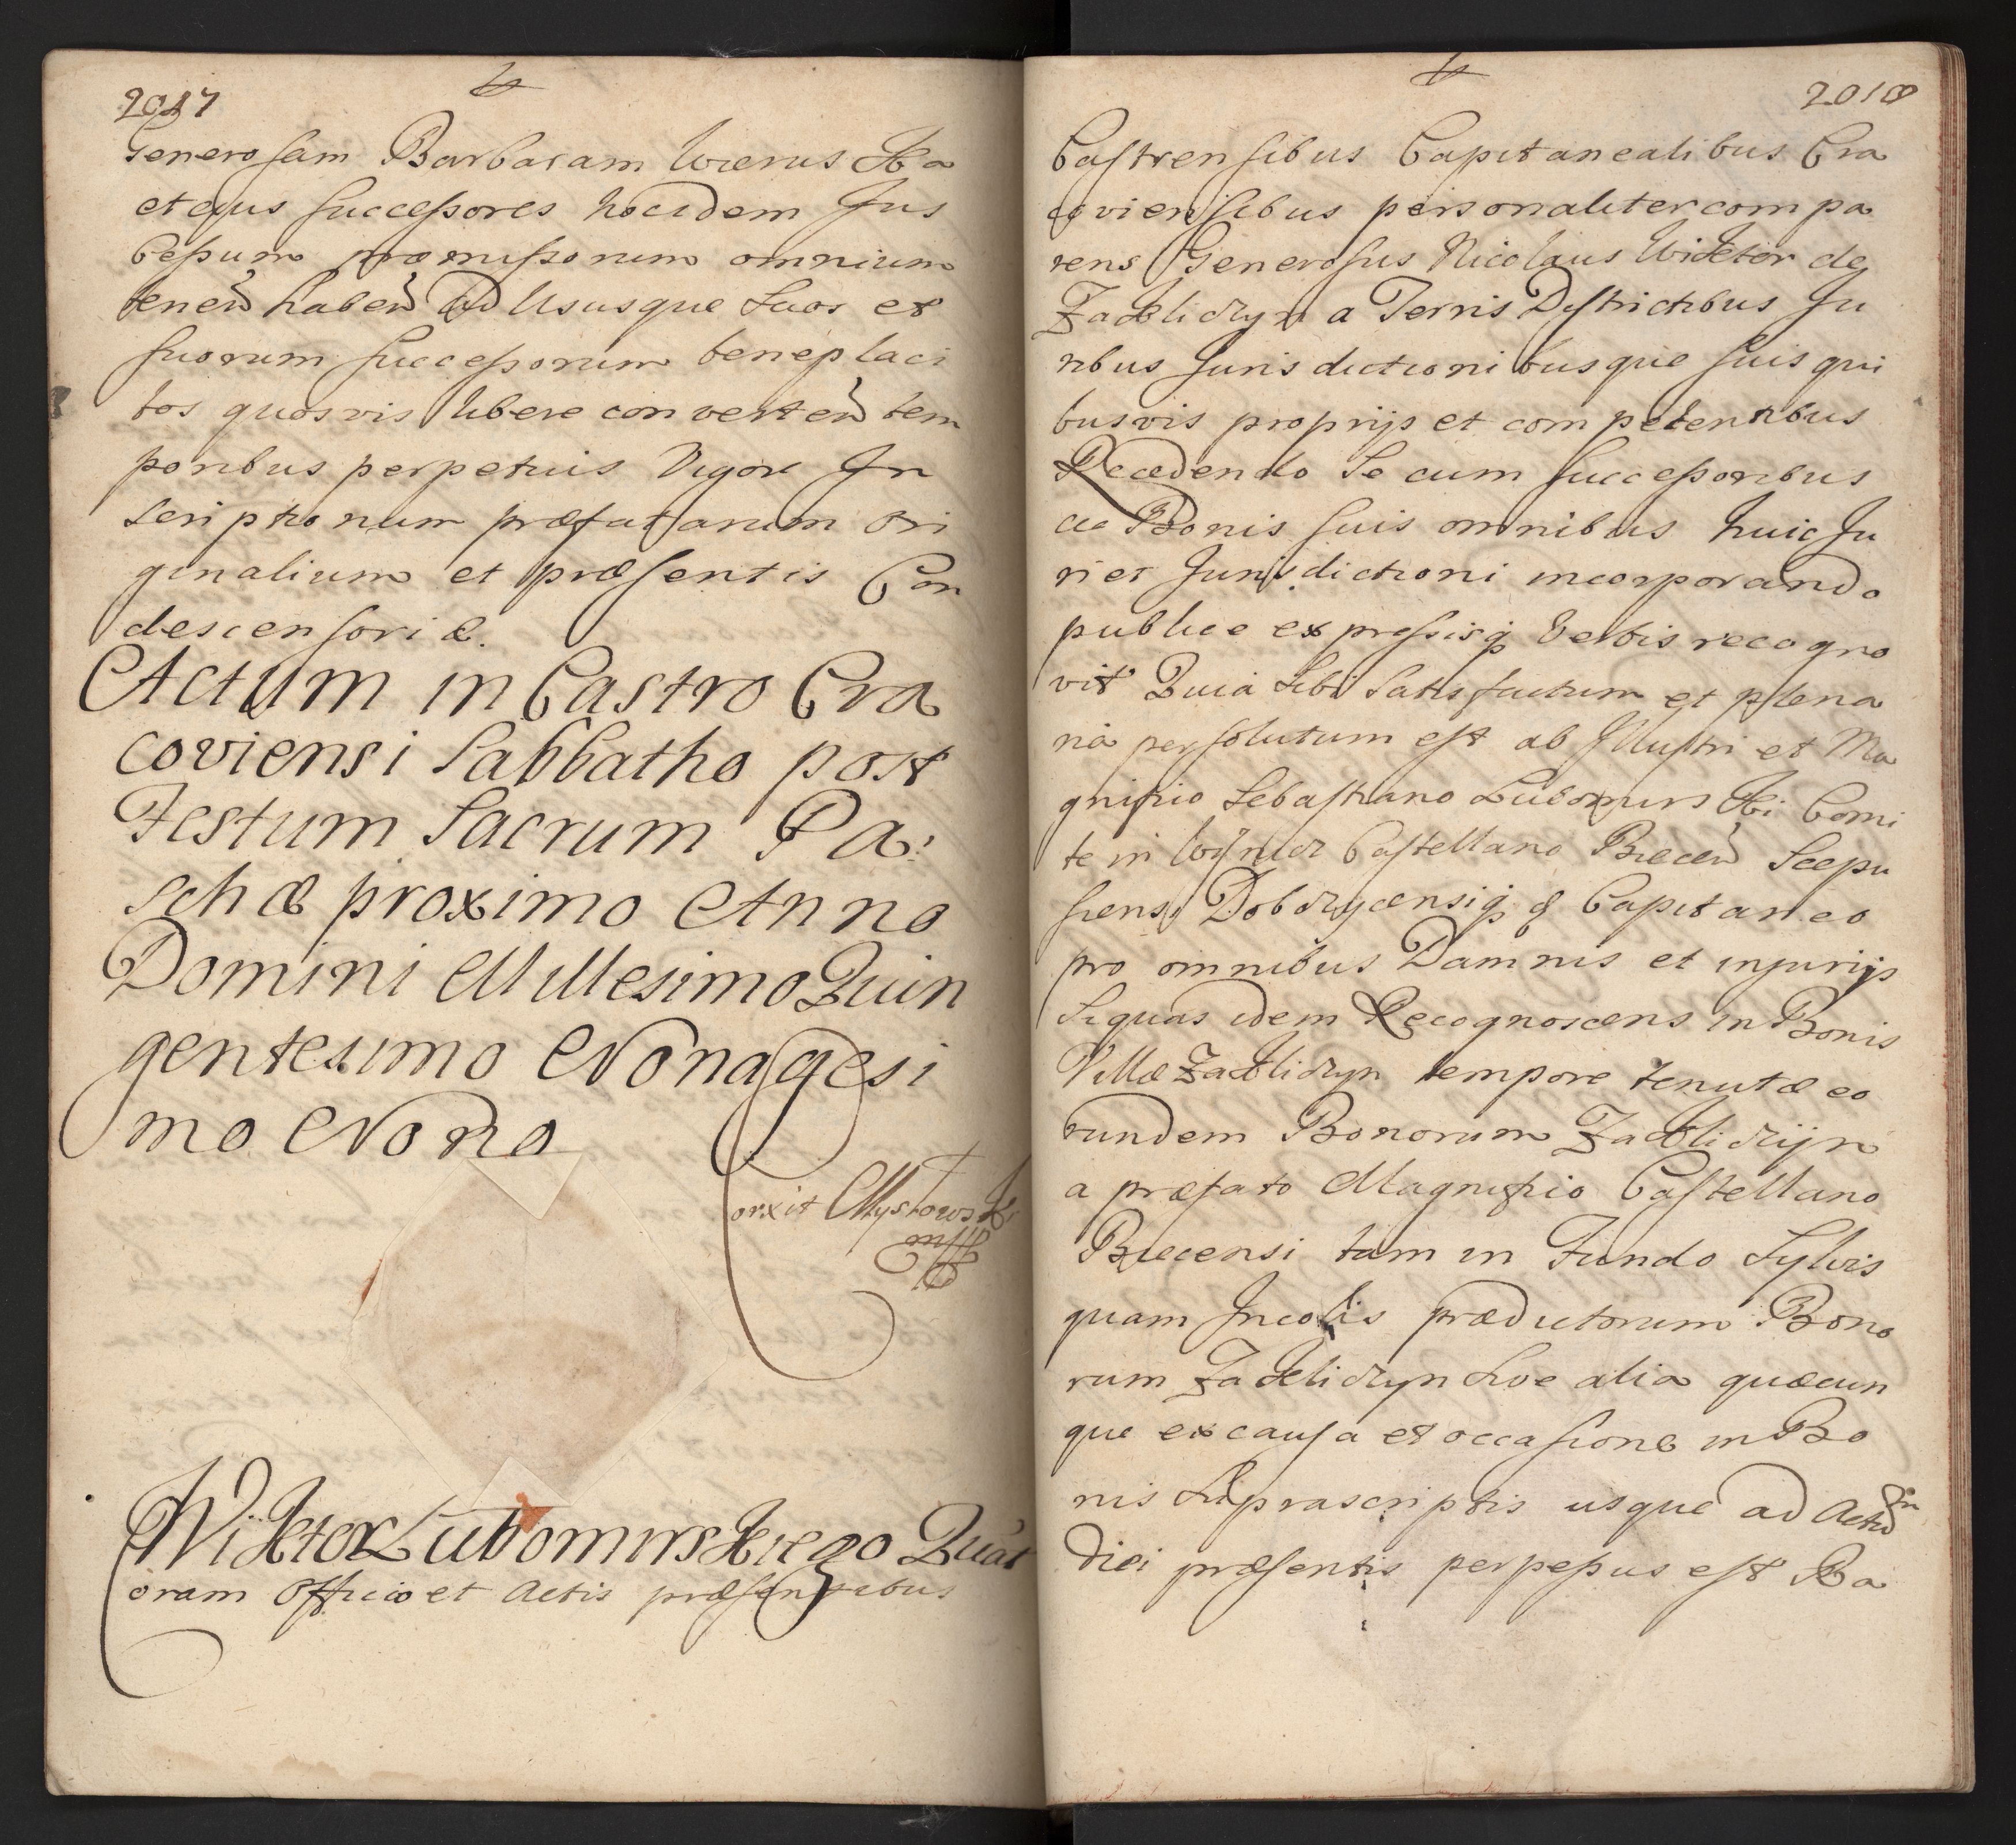 2017
Generosam Barbaram Wierus Ka
et ejus successores hocidem Jus
Cessum præmissorum omnium
tenen̄ haben̄ ad Ususque Suos et
suorum successorum beneplaci
tos quosvis libere converten̄ tem
poribus perpetuis Vigore In
scriptionum præfatarum ori
ginalium et præsentis Con
descensoriæ.
Actum in Castro Cra
coviensi Sabbatho post
Festum Sacrum Pa:
schæ proximo Anno
Domini Millesimo Quin
gentesimo Nonagesi
mo Nono
orxit Mystowsk
Wiktor Lubomirskiego Quat
oram Officio et Actis præsentibus
2018
Castrensibus Capitanealibus Cra
coviensibus personaliter compa
rens Generosus Nicolaus Wiktor de
Zakliczyn a Terris Districtibus Ju
ribus Jurisdictionibusque suis qui
busvis proprijs et competentibus
Recedendo Se cum successoribus
ac Bonis suis omnibus huic Ju
ri et Jurisdictioni incorporando
publice expressisq̄ Verbis recogno
vit Quia Sibi Satisfactum et plena
rià persolutum est ab Illustri et Ma
gnifico Sebastiano Lubomirski Comi
te in Wisnicz Castellano Biecen̄ Scepu
siensi Dobczycensiq̄ &amp; Capitaneo
pro omnibus Damnis et injurijs
Siquas idem Recognoscens in Bonis
Villæ Zakliczyn tempore tenutæ eo
rundem Bonorum Zakliczijn
a præfato Magnifico Castellano
Biecensi tam in Fundo Sylvis
quam Incolis prædictorum Bono
rum Zakliczyn Sive alia quæcun
que ex causa et occasione in Bo
nis Suprascriptis usque ad Actum
diei præsentis perpessus est Ra